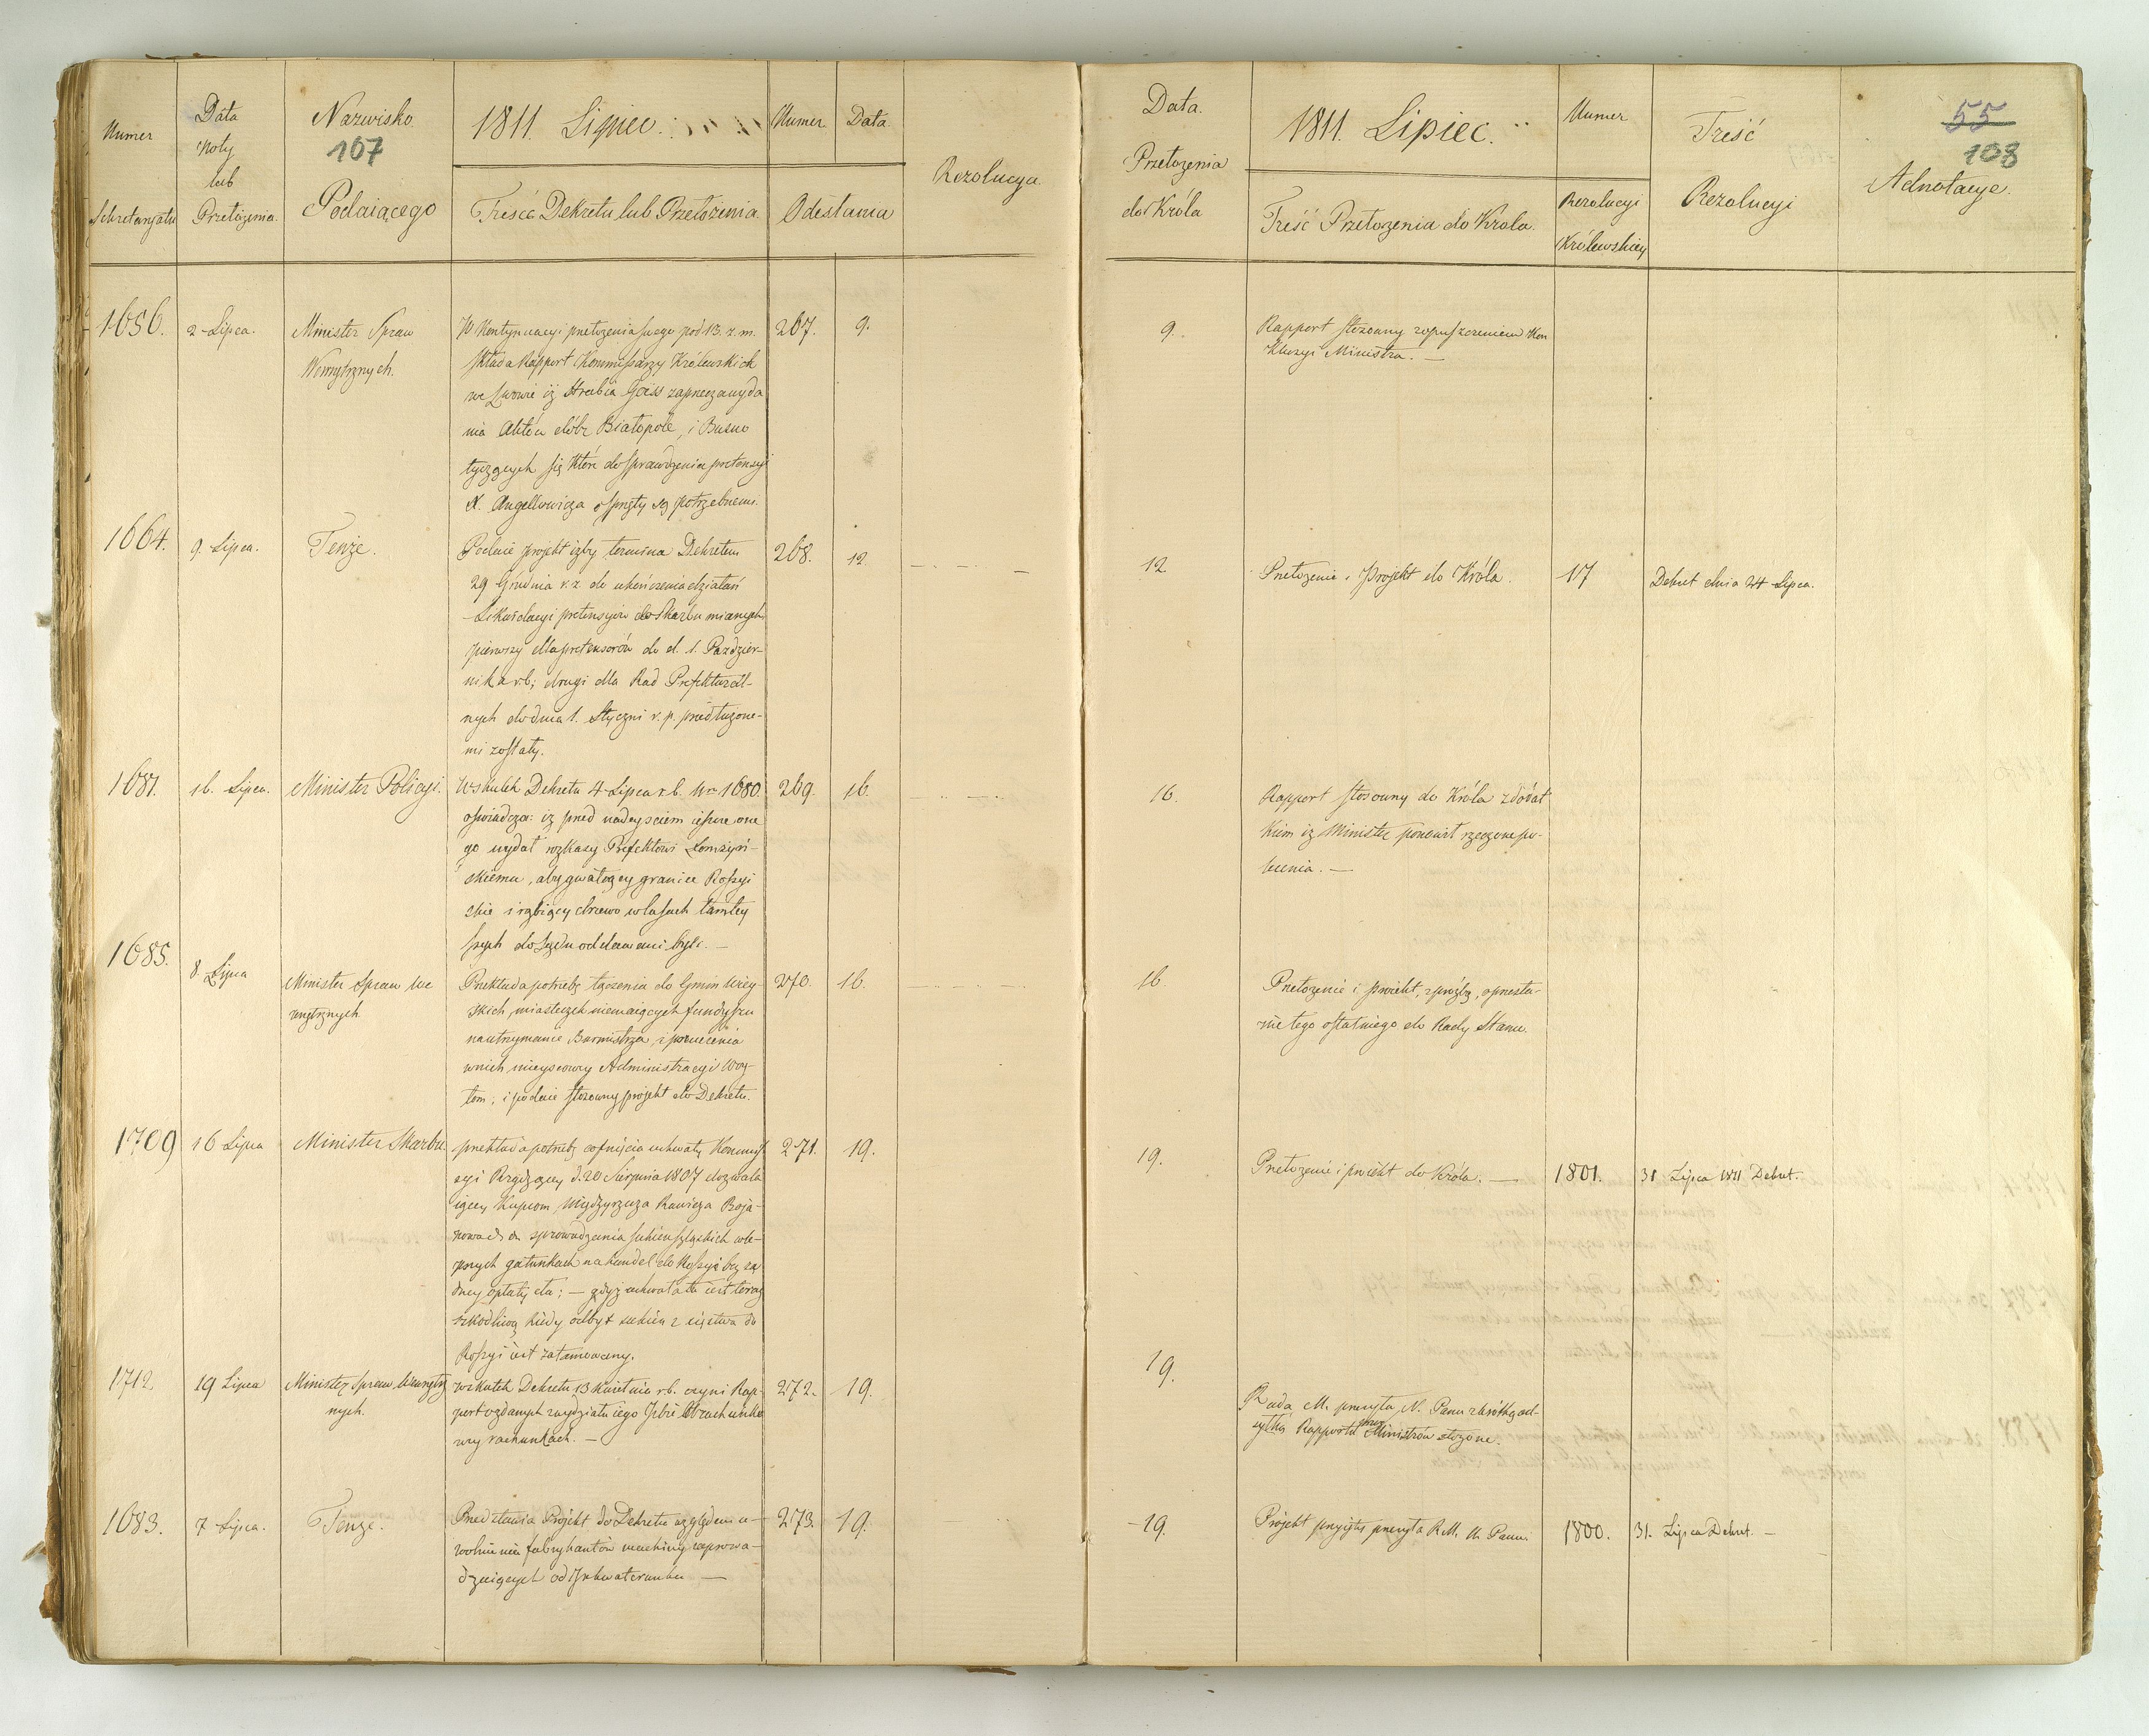 Numer
Sekretaryatu
Data
Noty
lub
Przełożenia.
Nazwisko
107
Podaiącego
1811. Lipiec.
Treść Dekretu lub Przełożenia.
Numer
Data.
Odesłania
Rezolucya.
1656.
2 Lipca.
Minister Spraw
Wewnętrznych.
W Kontynuacyi przełożenia swego pod 13. z. m.
składa Rapport Kommissarzy Królewskich
we Lwowie iż Hrabia Goiss zaprzecza wyda
nia Aktów dóbr Białopole, i Busno
tyczących się które do sprawdzenia pretensyi
X. Angellowicza są potrzebnemi.
267.
9.
1664.
9. Lipca.
Tenże.
Podaie projekt izby termina Dekretem
29 Grudnia r. z. do ukończenia działań
Likwidacyi pretensyiów do Skarbu mianych
pierwszy dla pretensorów do d. 1. Paździer-
nika r.b; drugi dla Rad Prefektural-
nych do dnia 1. Styczni r. p. przedłużone-
mi zostały.
268.
12.
1681.
16. Lipca.
Minister Policyi.
Wskutek Dekretu 4 Lipca r.b. Nro 1680.
oświadcza: iż przed nadeyściem ieszcze one
go wydał rozkazy Prefektowi Łomżyń-
skiemu, aby gwałcący granice Rossyi
skie i rąbiący drzewo w lasach tamtey
szych do Sądu oddawani byli. —
269.
16.
1685.
8 Lipca
Minister Spraw We
wnętrznych.
Przekłada potrzebę łączenia do Gmin Wiey-
skich, miasteczek niemaiących funduszu
na utrzymanie Burmistrza, i poruczenia
w nich mieyscowey Administracyi Woy-
tom; i podaie stosowny projekt do Dekretu.
270.
16.
1709
16 Lipca
Minister Skarbu.
przekłada potrzebę cofnięcia uchwały Kommis
syi Rządzącey d. 20 Sierpnia 1807 dozwala
iącey Kupcom Międzyrzecza Rawicza Boja-
nowa do sprowadzania sukien szląskich w le-
pszych gatunkach na handel do Rossyi bez ża
dney opłaty cła; — gdyż uchwała ta iest teraz
szkodliwą kiedy odbyt sukien z xięstwa do
Rossyi iest zatamowany.
271.
19.
1712
19 Lipca
Minister Spraw Wewnętrz
nych.
wskutek Dekretu 13 Kwietnia r.b. czyni Rap-
port o zdanych z wydziału iego Izbie Obrachunko
wey rachunkach. —
272.
19.
1683.
7 Lipca.
Tenże.
Przedstawia Projekt do Dekretu względem u-
wolnienia fabrykantów machiny zaprowa-
dzaiących od Inkwaterunku —
273.
19.
Data.
Przełożenia
do Króla
1811. Lipiec.
Treść Przełożenia do Króla.
Numer
Rezolucyi
Królewskiey
Treść
Rezolucyi
55
108
Adnotacye.
9.
Rapport stosowny z opuszczeniem Kon
kluzyi Ministra. —
12
Przełożenie i Projekt do Króla.
17
Dekret dnia 24 Lipca.
16.
Rapport stosowny do Króla z dodat
kiem iż Minister ponowił rzeczone po-
lecenia. —
16.
Przełożenie i proiekt, z prośbą, o przesła-
nie tego ostatniego do Rady Stanu.
19.
Przełożenie i proiekt do Króla. —
1801.
31 Lipca 1811 Dekret.
19.
Rada M. przesyła N. Panu
Rapporta przez Ministrów złożone.
19.
Projekt przyięty przesyła R.M. N. Panu.
1800.
31. Lipca Dekret. —